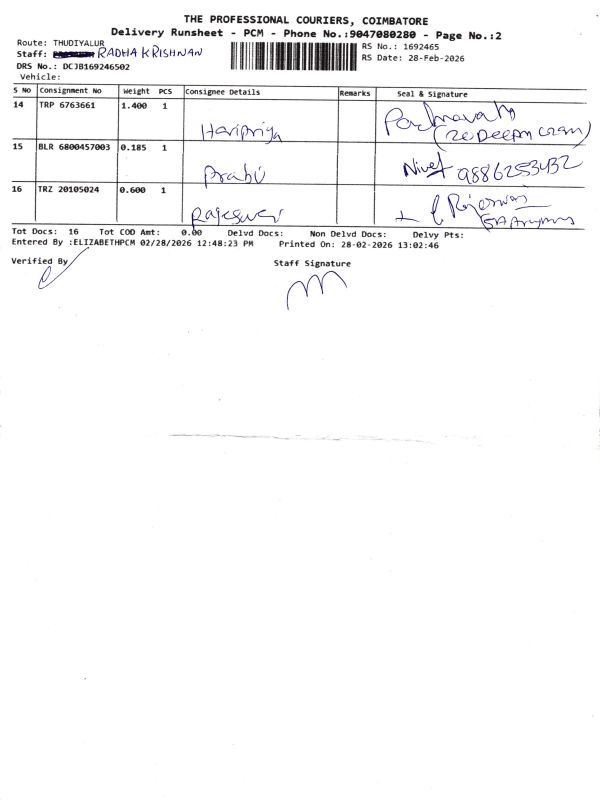 THE PROFESSIONAL COURIERS, COIMBATORE
Delivery Runsheet - PCM - Phone No.:9047080280 - Page No.:2
Route: THUDIYALUR
Staff: RADHA KRISHNAN
RS No.: 1692465
DRS No.: DCJB169246502
RS Date: 28-Feb-2026
Vehicle:
S No Consignment No Weight PCS Consignee Details Remarks Seal & Signature
14 TRP 6763661 1.400 1 Haripriya
15 BLR 6800457003 0.185 1 Prabu 9886253432
16 TRZ 20105024 0.600 1 Rajeswari
Tot Docs: 16 Tot COD Amt: 0.00 Delvd Docs: Non Delvd Docs: Delvy Pts:
Entered By :ELIZABETHPCM 02/28/2026 12:48:23 PM Printed On: 28-02-2026 13:02:46
Verified By Staff Signature